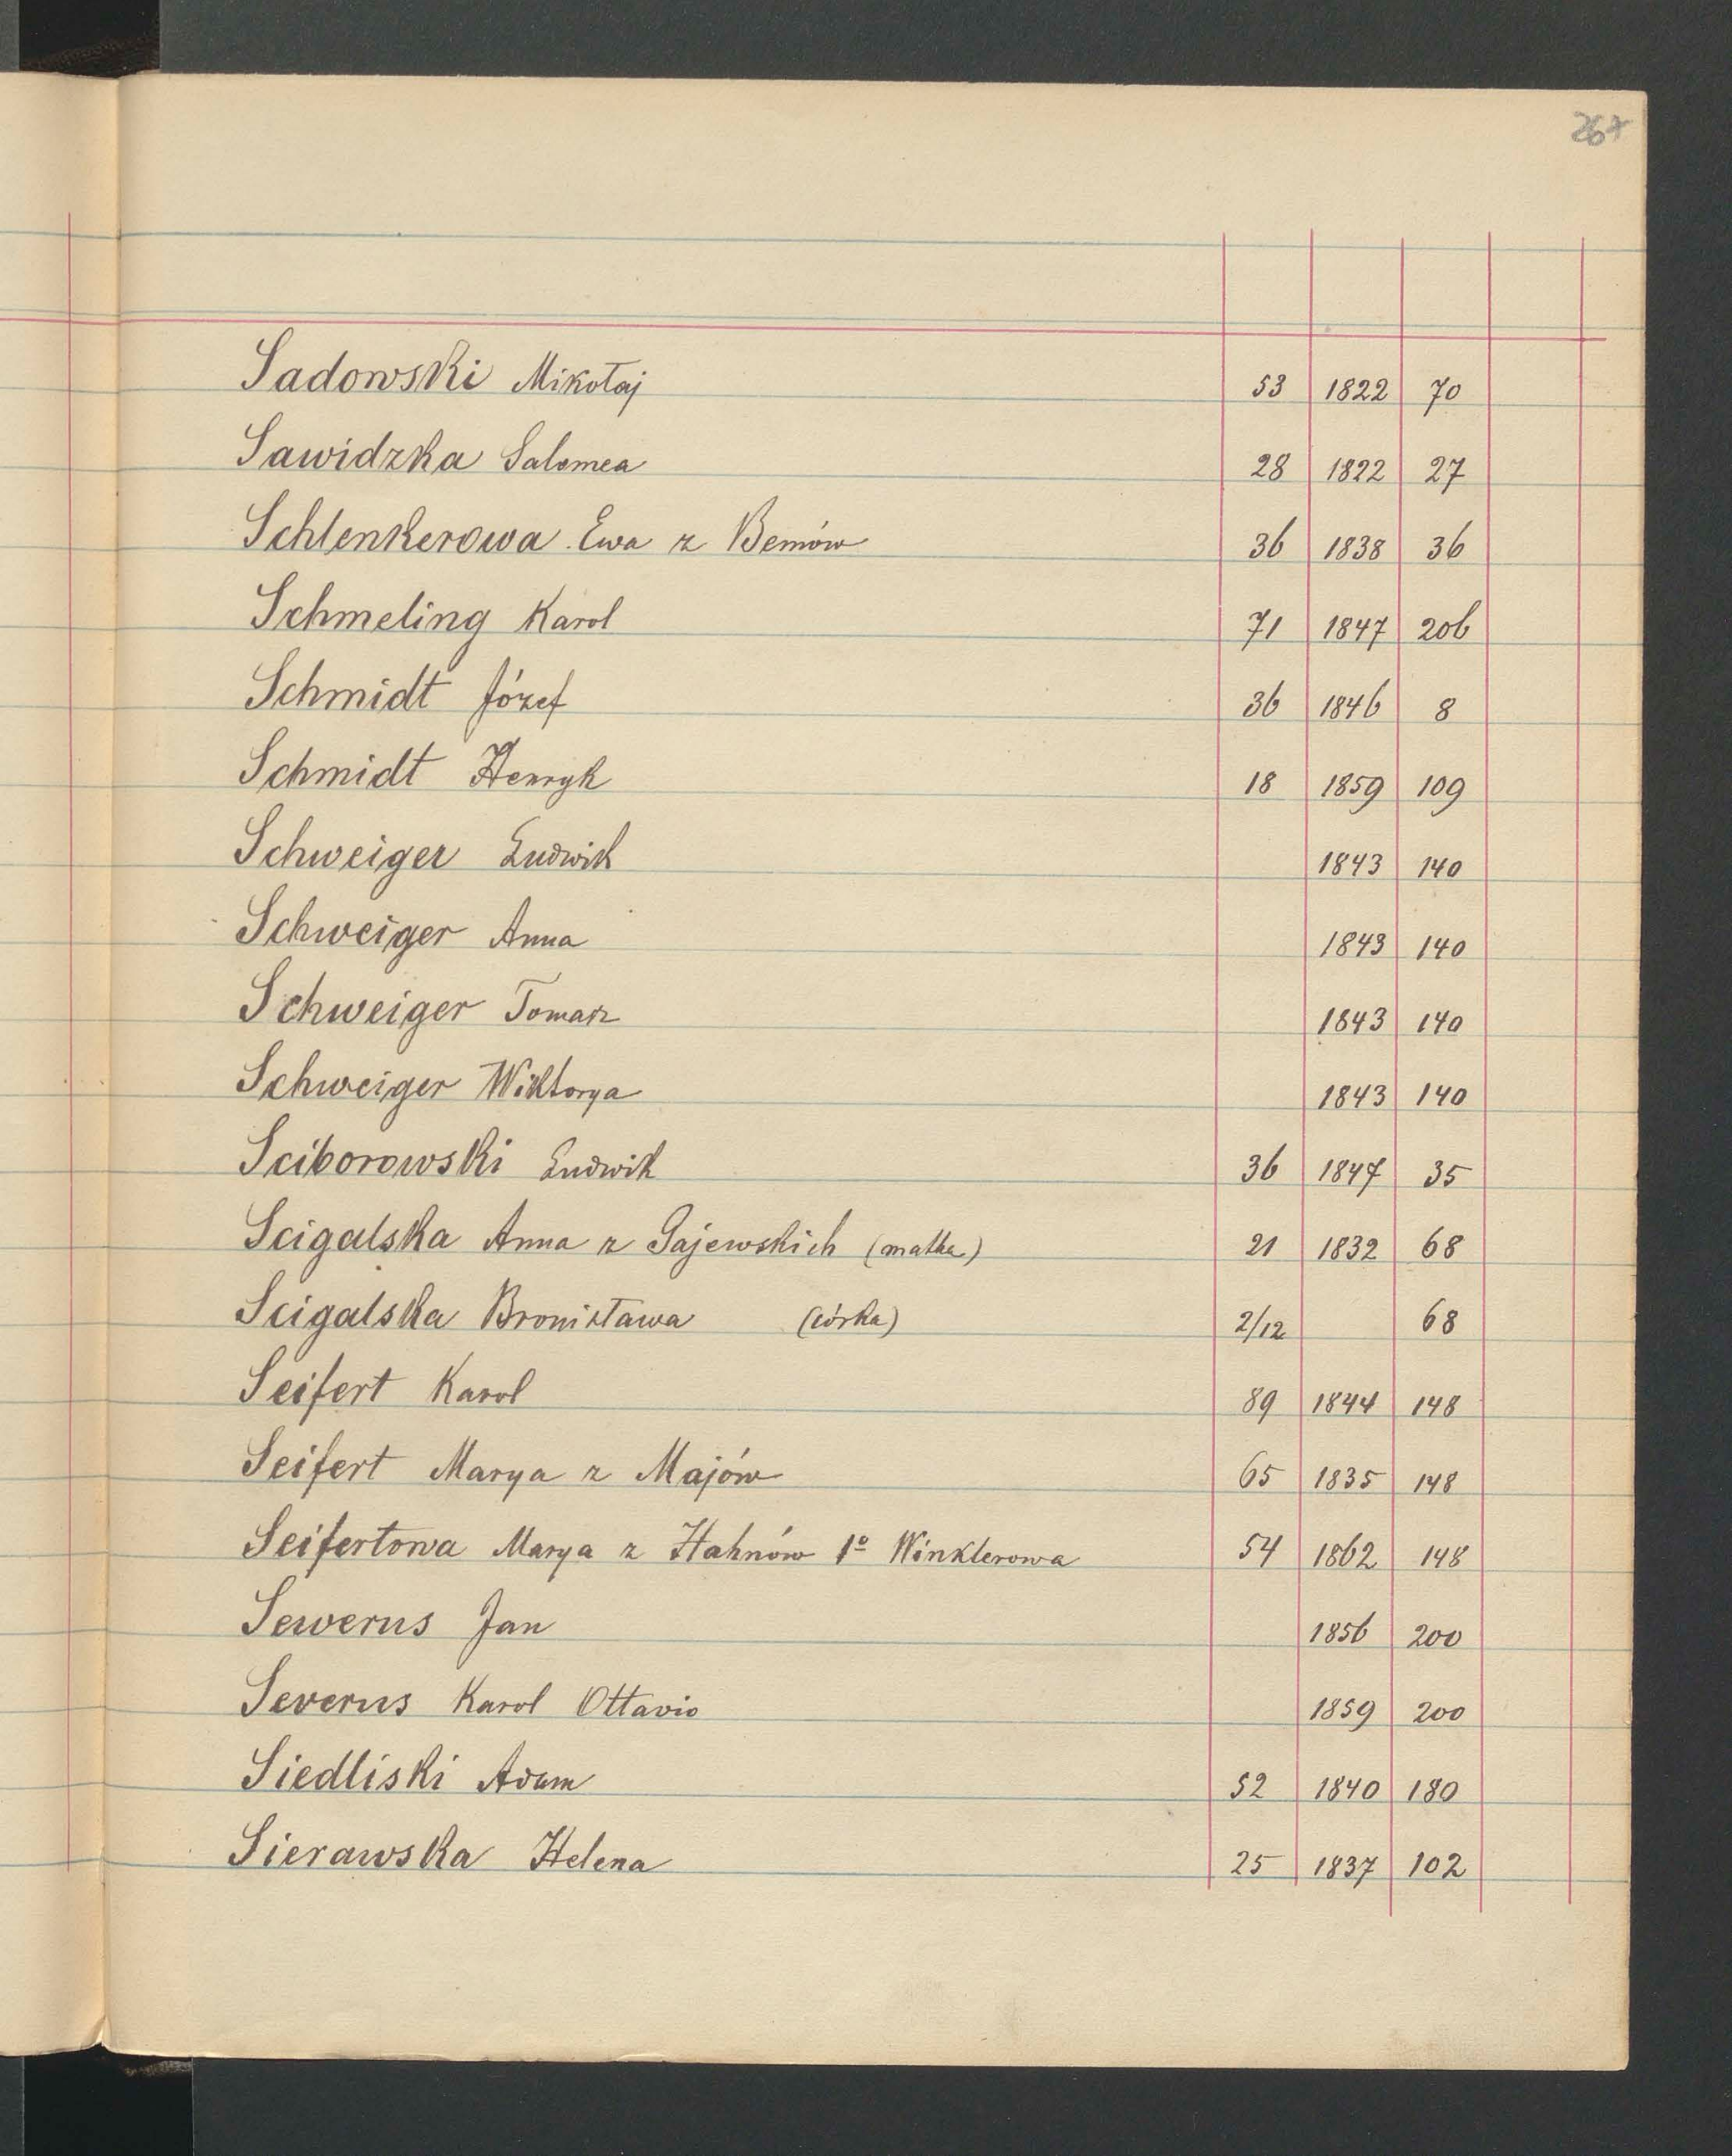 267
Sadowski Mikołaj 53 1822 70
Sawidzka Salomea 28 1822 27
Schlenkerowa Ewa z Bemów 36 1838 36
Schmeling Karol 71 1847 206
Schmidt Józef 36 1846 8
Schmidt Henryk 18 1859 109
Schweiger Ludwik 1843 140
Schweiger Anna 1843 140
Schweiger Tomasz 1843 140
Schweiger Wiktorya 1843 140
Sciborowski Ludwik 36 1847 35
Scigalska Anna z Gajewskich (matka) 21 1832 68
Scigalska Bronisława (córka) 2/12 68
Seifert Karol 89 1844 148
Seifert Marya z Majów 65 1835 148
Seifertowa Marya z Hahnów 1º Winklerowa 54 1862 148
Sewerus Jan 1856 200
Severus Karol Ottavio 1859 200
Siedliski Adam 52 1840 180
Sierawska Helena 25 1837 102